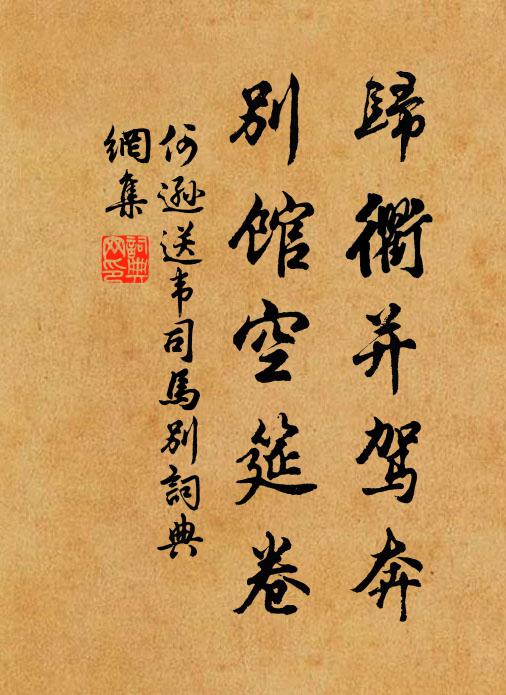 歸衢并駕奔
別館空筵卷
何遜送韦司馬別詞典
網集
詞典
网印